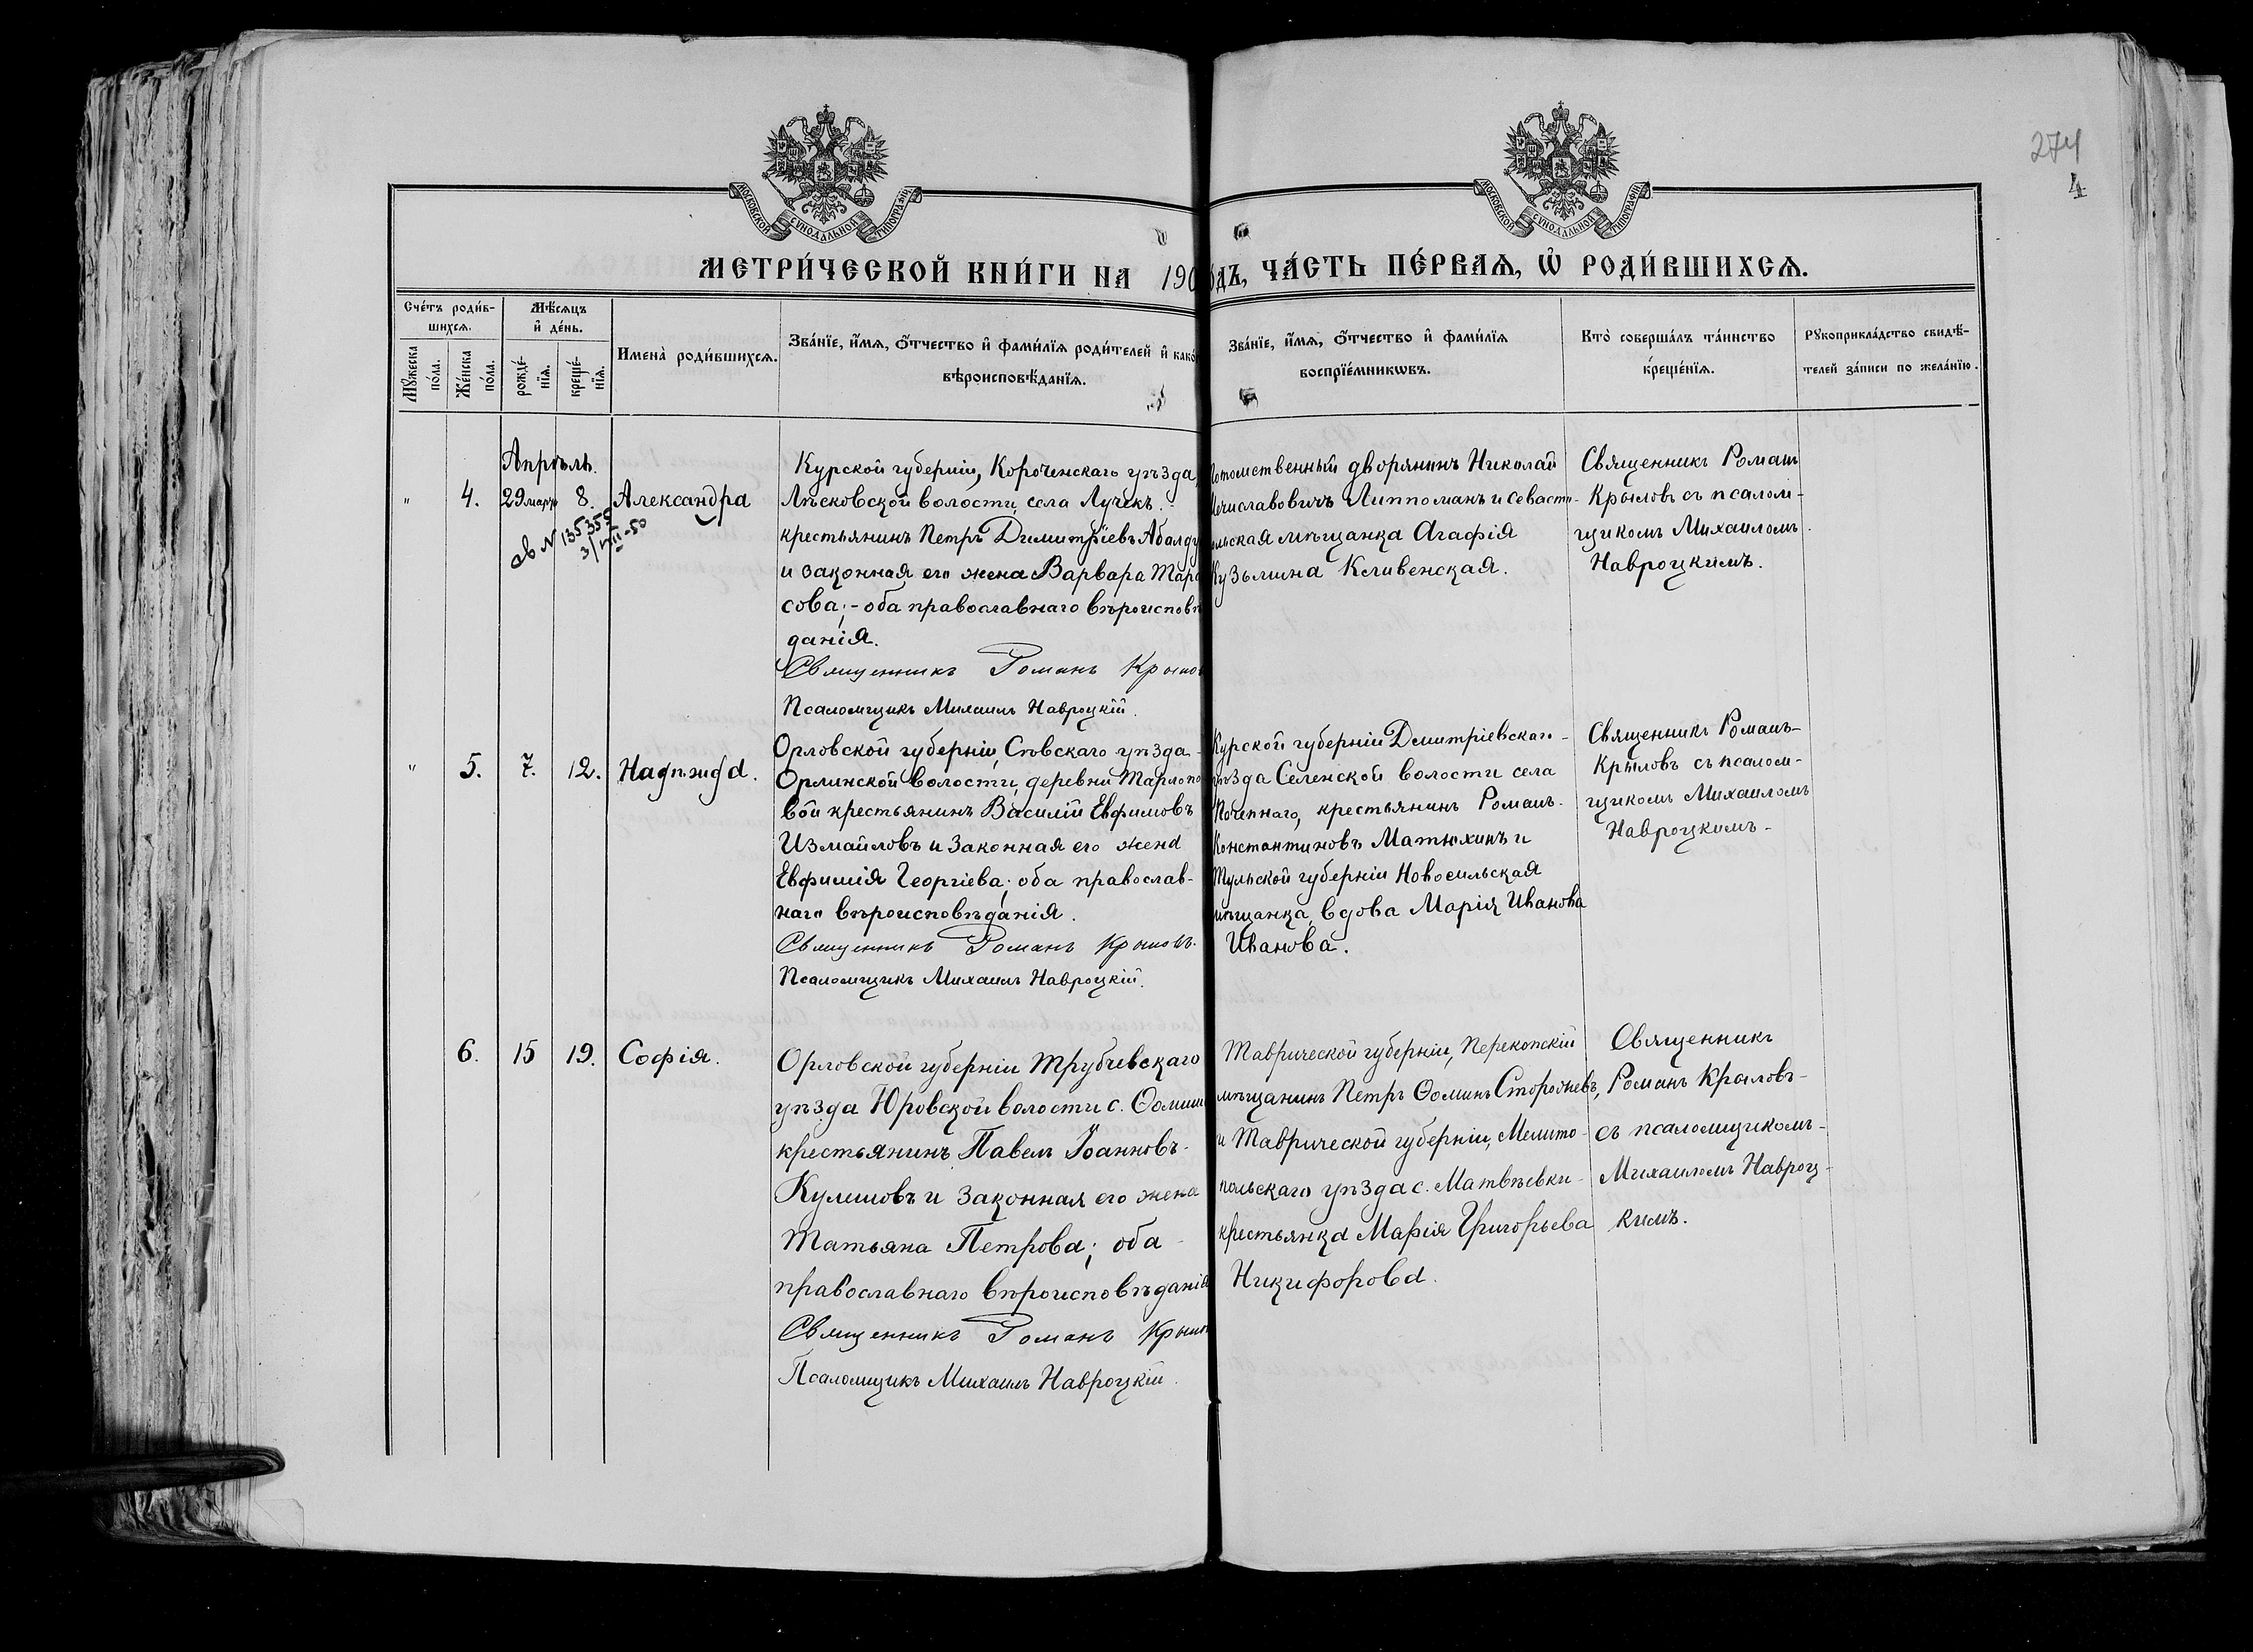 274
4
МОСКОВСКОЙ СѴНОДАЛЬНОЙ ТИПОГРАФІИ
МОСКОВСКОЙ СѴНОДАЛЬНОЙ ТИПОГРАФІИ
МЕТРИ́ЧЕСКОЙ КНИ́ГИ НА 190
ОДЪ, ЧА́СТЬ ПЕ́РВАѦ, Ѡ҆ РОДИ́ВШИХСѦ.
Сче́тъ роди́в-
шихсѧ.
Мꙋ́жеска
по́ла.
Же́нска
по́ла.
Мѣ́сѧцъ
и҆ де́нь.
рожде́-
нїѧ.
креще́-
нїѧ.
Имена̀ роди́вшихсѧ.
Зва́нїе, и҆́мѧ, ѻ҆́тчество и҆ фами́лїѧ роди́телей и҆ како́
вѣроисповѣ́данїѧ.
Зва́нїе, и҆́мѧ, ѻ҆́тчество и҆ фами́лїѧ
воспрїе́мникѡвъ.
Кто̀ соверша́лъ та́инство
креще́нїѧ.
Рꙋкоприкла́дство свидѣ́-
телей за́писи по жела́нїю.
Апрѣль.
" 4. 29 марта 8. Александра
св N 135355
3/VII-50
Курской губерніи, Короченскаго уѣзда,
Лѣсковской волости, села Лучекъ.
крестьянинъ Петръ Димитріевъ Абалду
и законная его жена Варвара Тара
сова; - оба православнаго вѣроисповѣ
данія.
Священникъ Романъ Крылов
Псаломщикъ Михаилъ Навроцкій.
Потомственный дворянинъ Николай
Мечиславовичъ Липпоманъ и севасто-
польская мѣщанка Агафія
Кузьмина Кливенская.
Священникъ Романъ
Крыловъ съ псалом-
щикомъ Михаиломъ
Навроцкимъ.
" 5. 7. 12. Надѣжда.
Орловской губерніи, Сѣвскаго уѣзда-
Орлинской волости, деревни Тарлопо
вой крестьянинъ Василій Евфимовъ
Измайловъ и законная его жена
Евфимія Георгіева; оба православ-
наго вѣроисповѣданія.
Священникъ Романъ Крыловъ.
Псаломщикъ Михаилъ Навроцкій.
Курской губерніи Дмитріевскаго-
уѣзда Селенской волости села
Почепнаго, крестьянинъ Романъ-
Константиновъ Матюхинъ и
Тульской губерніи Новосильская
мѣщанка, вдова Марія Иванова
Иванова.
Священникъ Романъ-
Крыловъ съ псалом-
щикомъ Михаиломъ
Навроцкимъ-
6. 15 19. Софія.
Орловской губерніи Трубчевскаго
уѣзда Юровской волости с. Ѳомин
крестьянинъ Павелъ Іоанновъ-
Кулешовъ и законная его жена
Татьяна Петрова; оба-
православнаго вѣроисповѣданія
Священникъ Романъ Крылов
Псаломщикъ Михаилъ Навроцкій.
Таврической губерніи, Перекопскій
мѣщанинъ Петръ Ѳоминъ Сторожевъ,
и Таврической губерніи, Мелито-
польскаго уѣзда с. Матвѣевки-
крестьянка Марія Григорьева
Никифорова.
Священникъ
Романъ Крыловъ-
съ псаломщикомъ-
Михаиломъ Навроц-
кимъ.